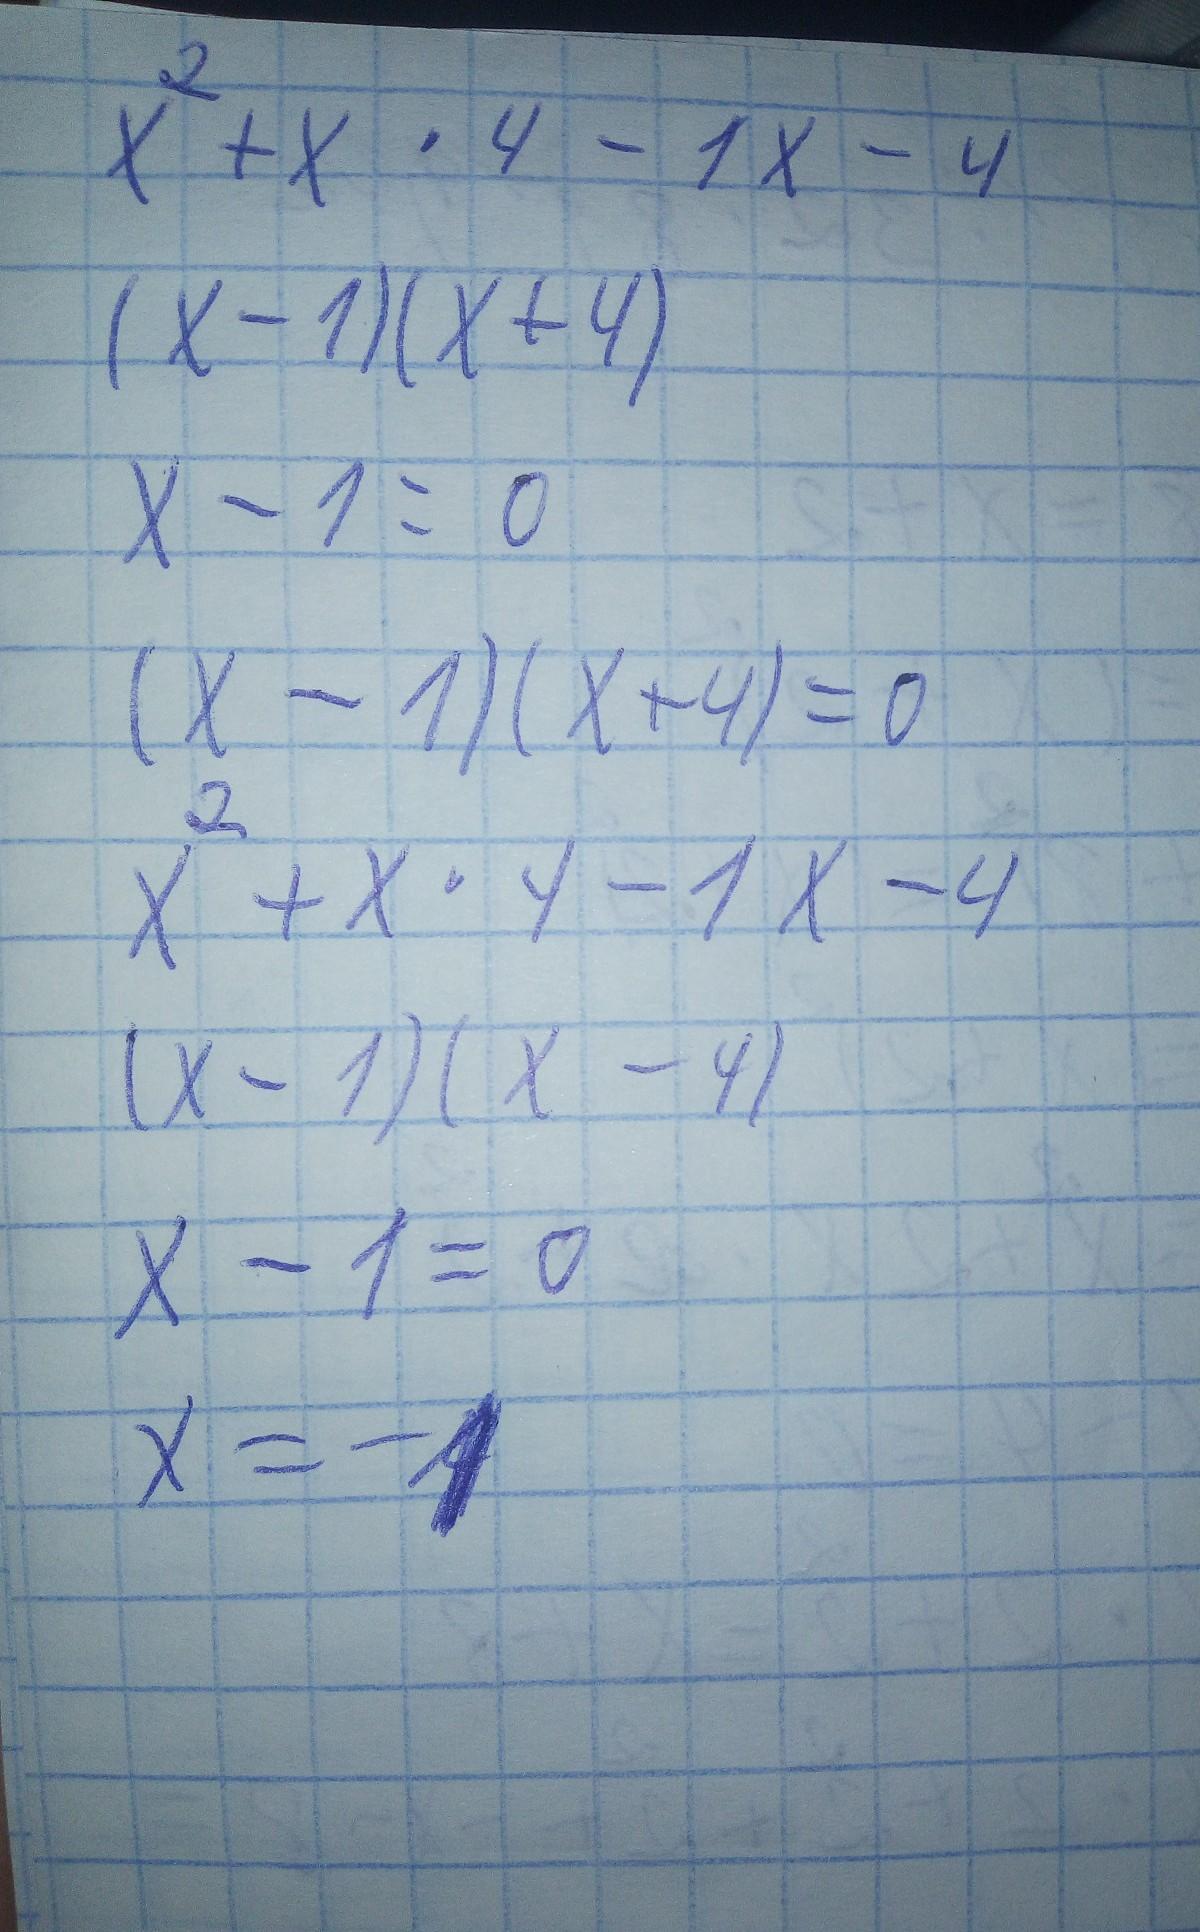 x² + x · 4 - 1x - 4
(x - 1)(x + 4)
x - 1 = 0
(x - 1)(x + 4) = 0
x² + x · 4 - 1x - 4
(x - 1)(x - 4)
x - 1 = 0
x = -1